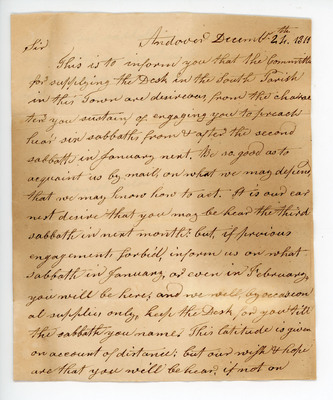 Andover Decemb. 24th. 1811
Sir
This is to inform you that the Committee
for supplying the Desk in the South Parish
in this Town are desireous, from the charac
ter you sustain of engaging you to preach
hear six sabbaths from & after the second
sabbath in January next. Be so good as to
acquaint us by mail, on what we may depend,
that we may know how to act. It is our ear
nest desire that you may be hear the third
sabbath in next month: but, if previous
engagements forbid, inform us on what
sabbath in January, or even in February,
you will be here; and we will, by occasion
al supplies only, keep the Desk for you till
the sabbath you name. This latitude is given
on account of distance: but our wish & hope
are that you will be hear, if not on